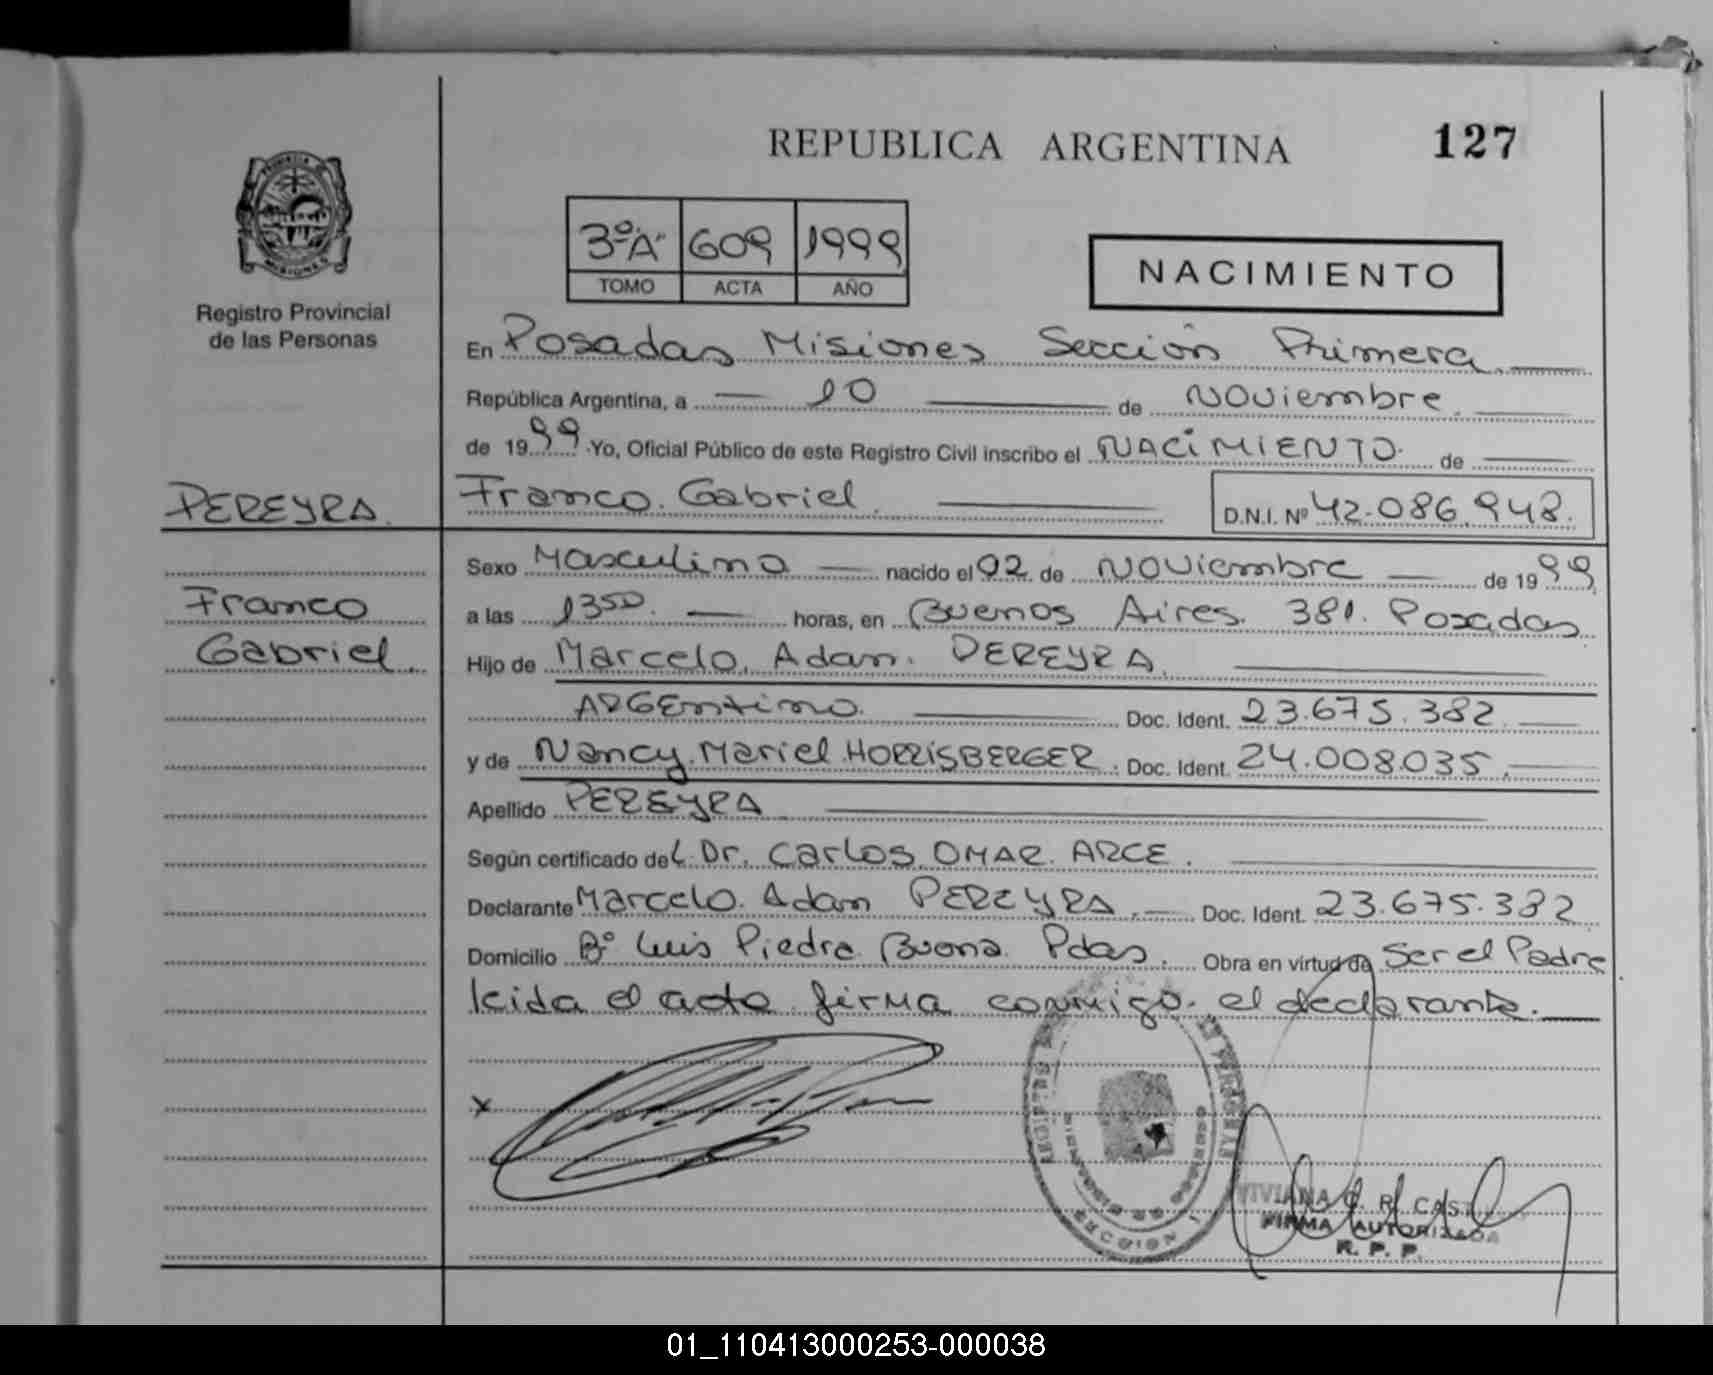 REPUBLICA ARGENTINA 127
PROVINCIA
MISIONES
Registro Provincial
de las Personas
3º"A" 609 1999
TOMO ACTA AÑO
NACIMIENTO
En Posadas Misiones Sección Primera.
República Argentina, a 10 de Noviembre.
de 1999 Yo, Oficial Público de este Registro Civil inscribo el NACIMIENTO de
PEREYRA
Franco Gabriel D.N.I. Nº 42.086.948.
Sexo Masculino nacido el 02 de Noviembre de 1999
Franco
a las 1350. horas, en Buenos Aires. 381. Posadas
Gabriel.
Hijo de Marcelo Adan. PEREYRA
ARGEntino. Doc. Ident. 23.675.382
y de Nancy Mariel HORRISBERGER. Doc. Ident. 24.008.035
Apellido PEREYRA
Según certificado del Dr. Carlos OMAR ARCE.
Declarante Marcelo Adan PEREYRA. Doc. Ident. 23.675.382
Domicilio Bº Luis Piedra Buena Pdas. Obra en virtud de Ser el Padre
leida el acta firma conmigo el declarante.
x
SECCION 1
VIVIANA R. CAST
FIRMA AUTORIZADA
R. P. P.
01_110413000253-000038